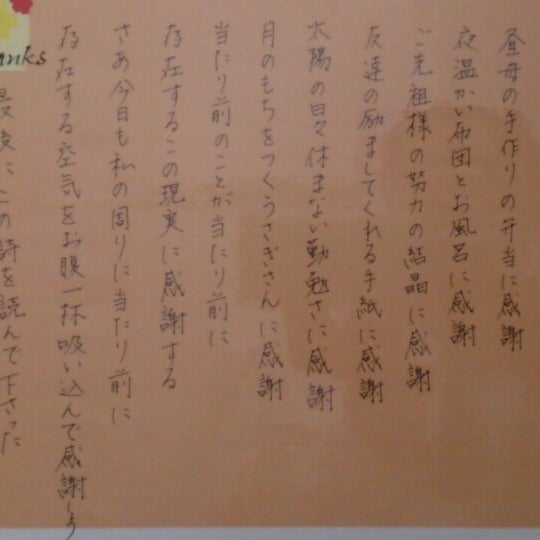 昼母の手作りの弁当に感謝
夜温かい布団とお風呂に感謝
ご先祖様の努力の結晶に感謝
友達の励ましてくれる手紙に感謝
太陽の日々休まない勤勉さに感謝
月のもちをつくうさぎさんに感謝
当たり前のことが当たり前に
存在するこの現実に感謝する
さあ今日も私の周りに当たり前に
存在する空気をお腹一杯吸い込んで感謝しよう
最後にこの詩を読んで下さった
anks